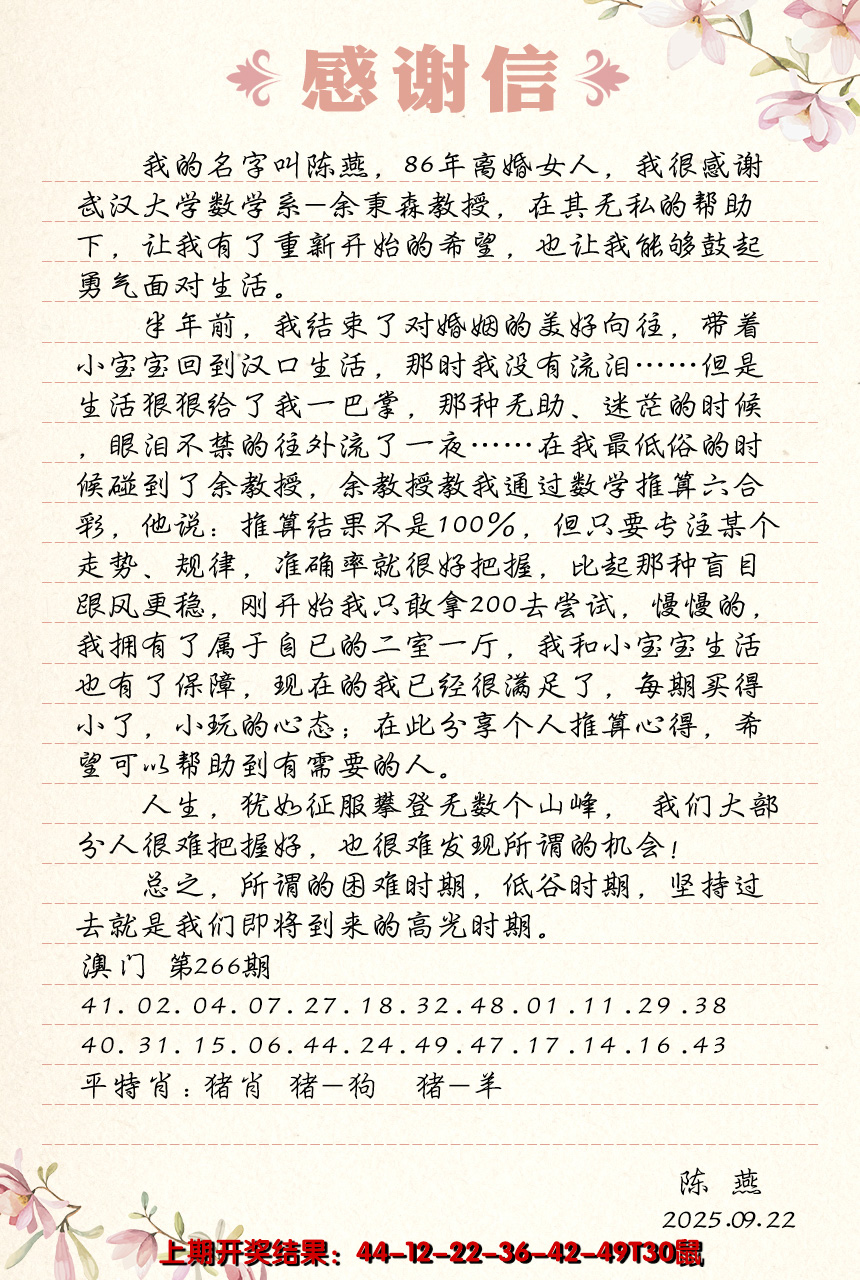 感谢信
我的名字叫陈燕，86年离婚女人，我很感谢
武汉大学数学系—余秉森教授，在其无私的帮助
下，让我有了重新开始的希望，也让我能够鼓起
勇气面对生活。
半年前，我结束了对婚姻的美好向往，带着
小宝宝回到汉口生活，那时我没有流泪……但是
生活狠狠给了我一巴掌，那种无助、迷茫的时候
，眼泪不禁的往外流了一夜……在我最低俗的时
候碰到了余教授，余教授教我通过数学推算六合
彩，他说：推算结果不是100%，但只要专注某个
走势、规律，准确率就很好把握，比起那种盲目
跟风更稳，刚开始我只敢拿200去尝试，慢慢的，
我拥有了属于自已的二室一厅，我和小宝宝生活
也有了保障，现在的我已经很满足了，每期买得
小了，小玩的心态；在此分享个人推算心得，希
望可以帮助到有需要的人。
人生，犹如征服攀登无数个山峰， 我们大部
分人很难把握好，也很难发现所谓的机会！
总之，所谓的困难时期，低谷时期，坚持过
去就是我们即将到来的高光时期。
澳门 第266期
41.02.04.07.27.18.32.48.01.11.29.38
40.31.15.06.44.24.49.47.17.14.16.43
平特肖：猪肖 猪—狗 猪—羊
陈 燕
2025.09.22
上期开奖结果：44-12-22-36-42-49T30鼠